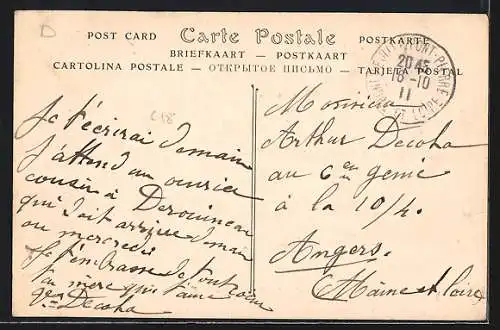 D
POST CARD
Carte Postale
POSTKARTE
BRIEFKAART — POSTKAART
CARTOLINA POSTALE — ОТКРЫТОЕ ПИСЬМО — TARJETA POSTAL
PONT-PIERRE
20 45
18-10
11
C48
Je t'écrirai demain
j'attend un ouvrier
cousin à Derouineau
qui doit arriver demain
ou mercredi
Je t'embrasse de tout cœur
ta mère qui t'aime
Decoha
Monsieur
Arthur Decoha
au 6 en génie
à la 10/4.
Angers.
Maine et Loire